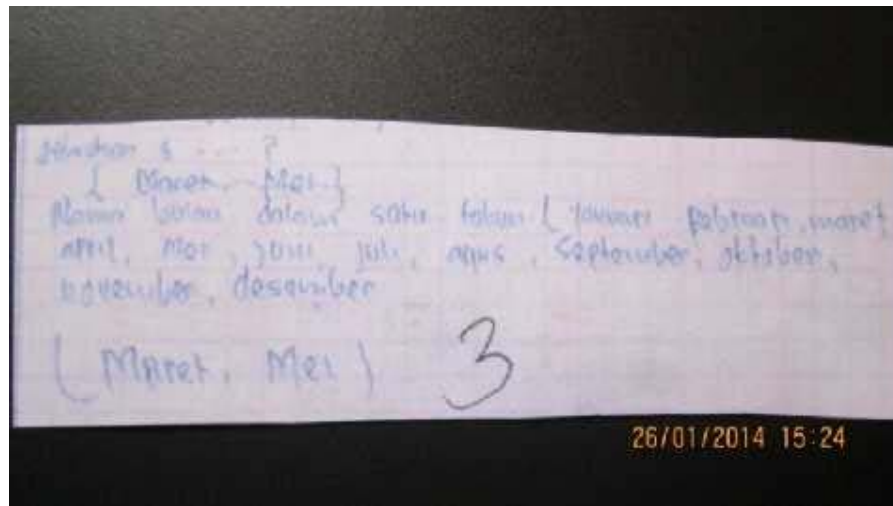 { Maret, Mei }
Nama bulan dalam satu tahun { januari februari, maret
april, mei, juni, juli, agus, september, oktober,
november, desember
( Maret, Mei ) 3
26/01/2014 15:24